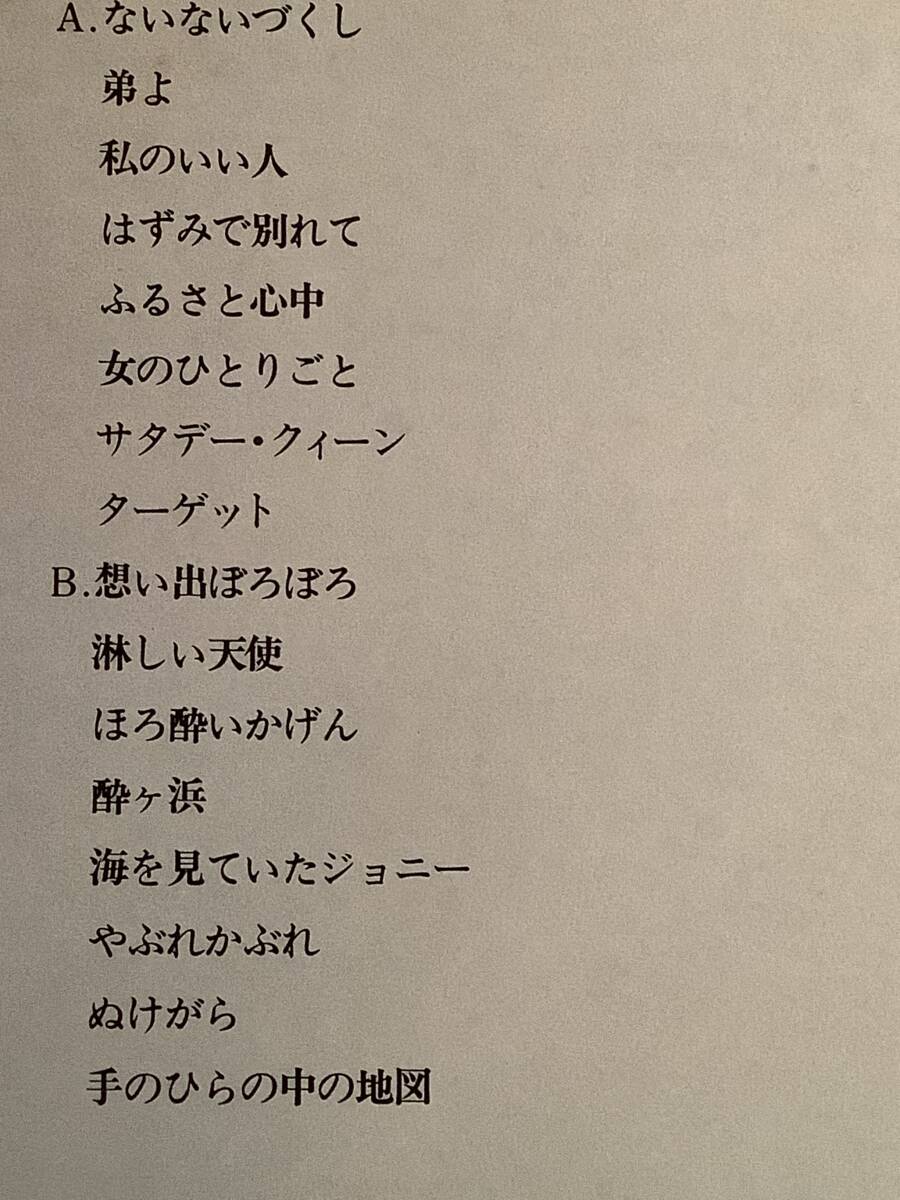 A.ないないづくし
弟よ
私のいい人
はずみで別れて
ふるさと心中
女のひとりごと
サタデー・クィーン
ターゲット
B.想い出ぼろぼろ
淋しい天使
ほろ酔いかげん
酔ヶ浜
海を見ていたジョニー
やぶれかぶれ
ぬけがら
手のひらの中の地図